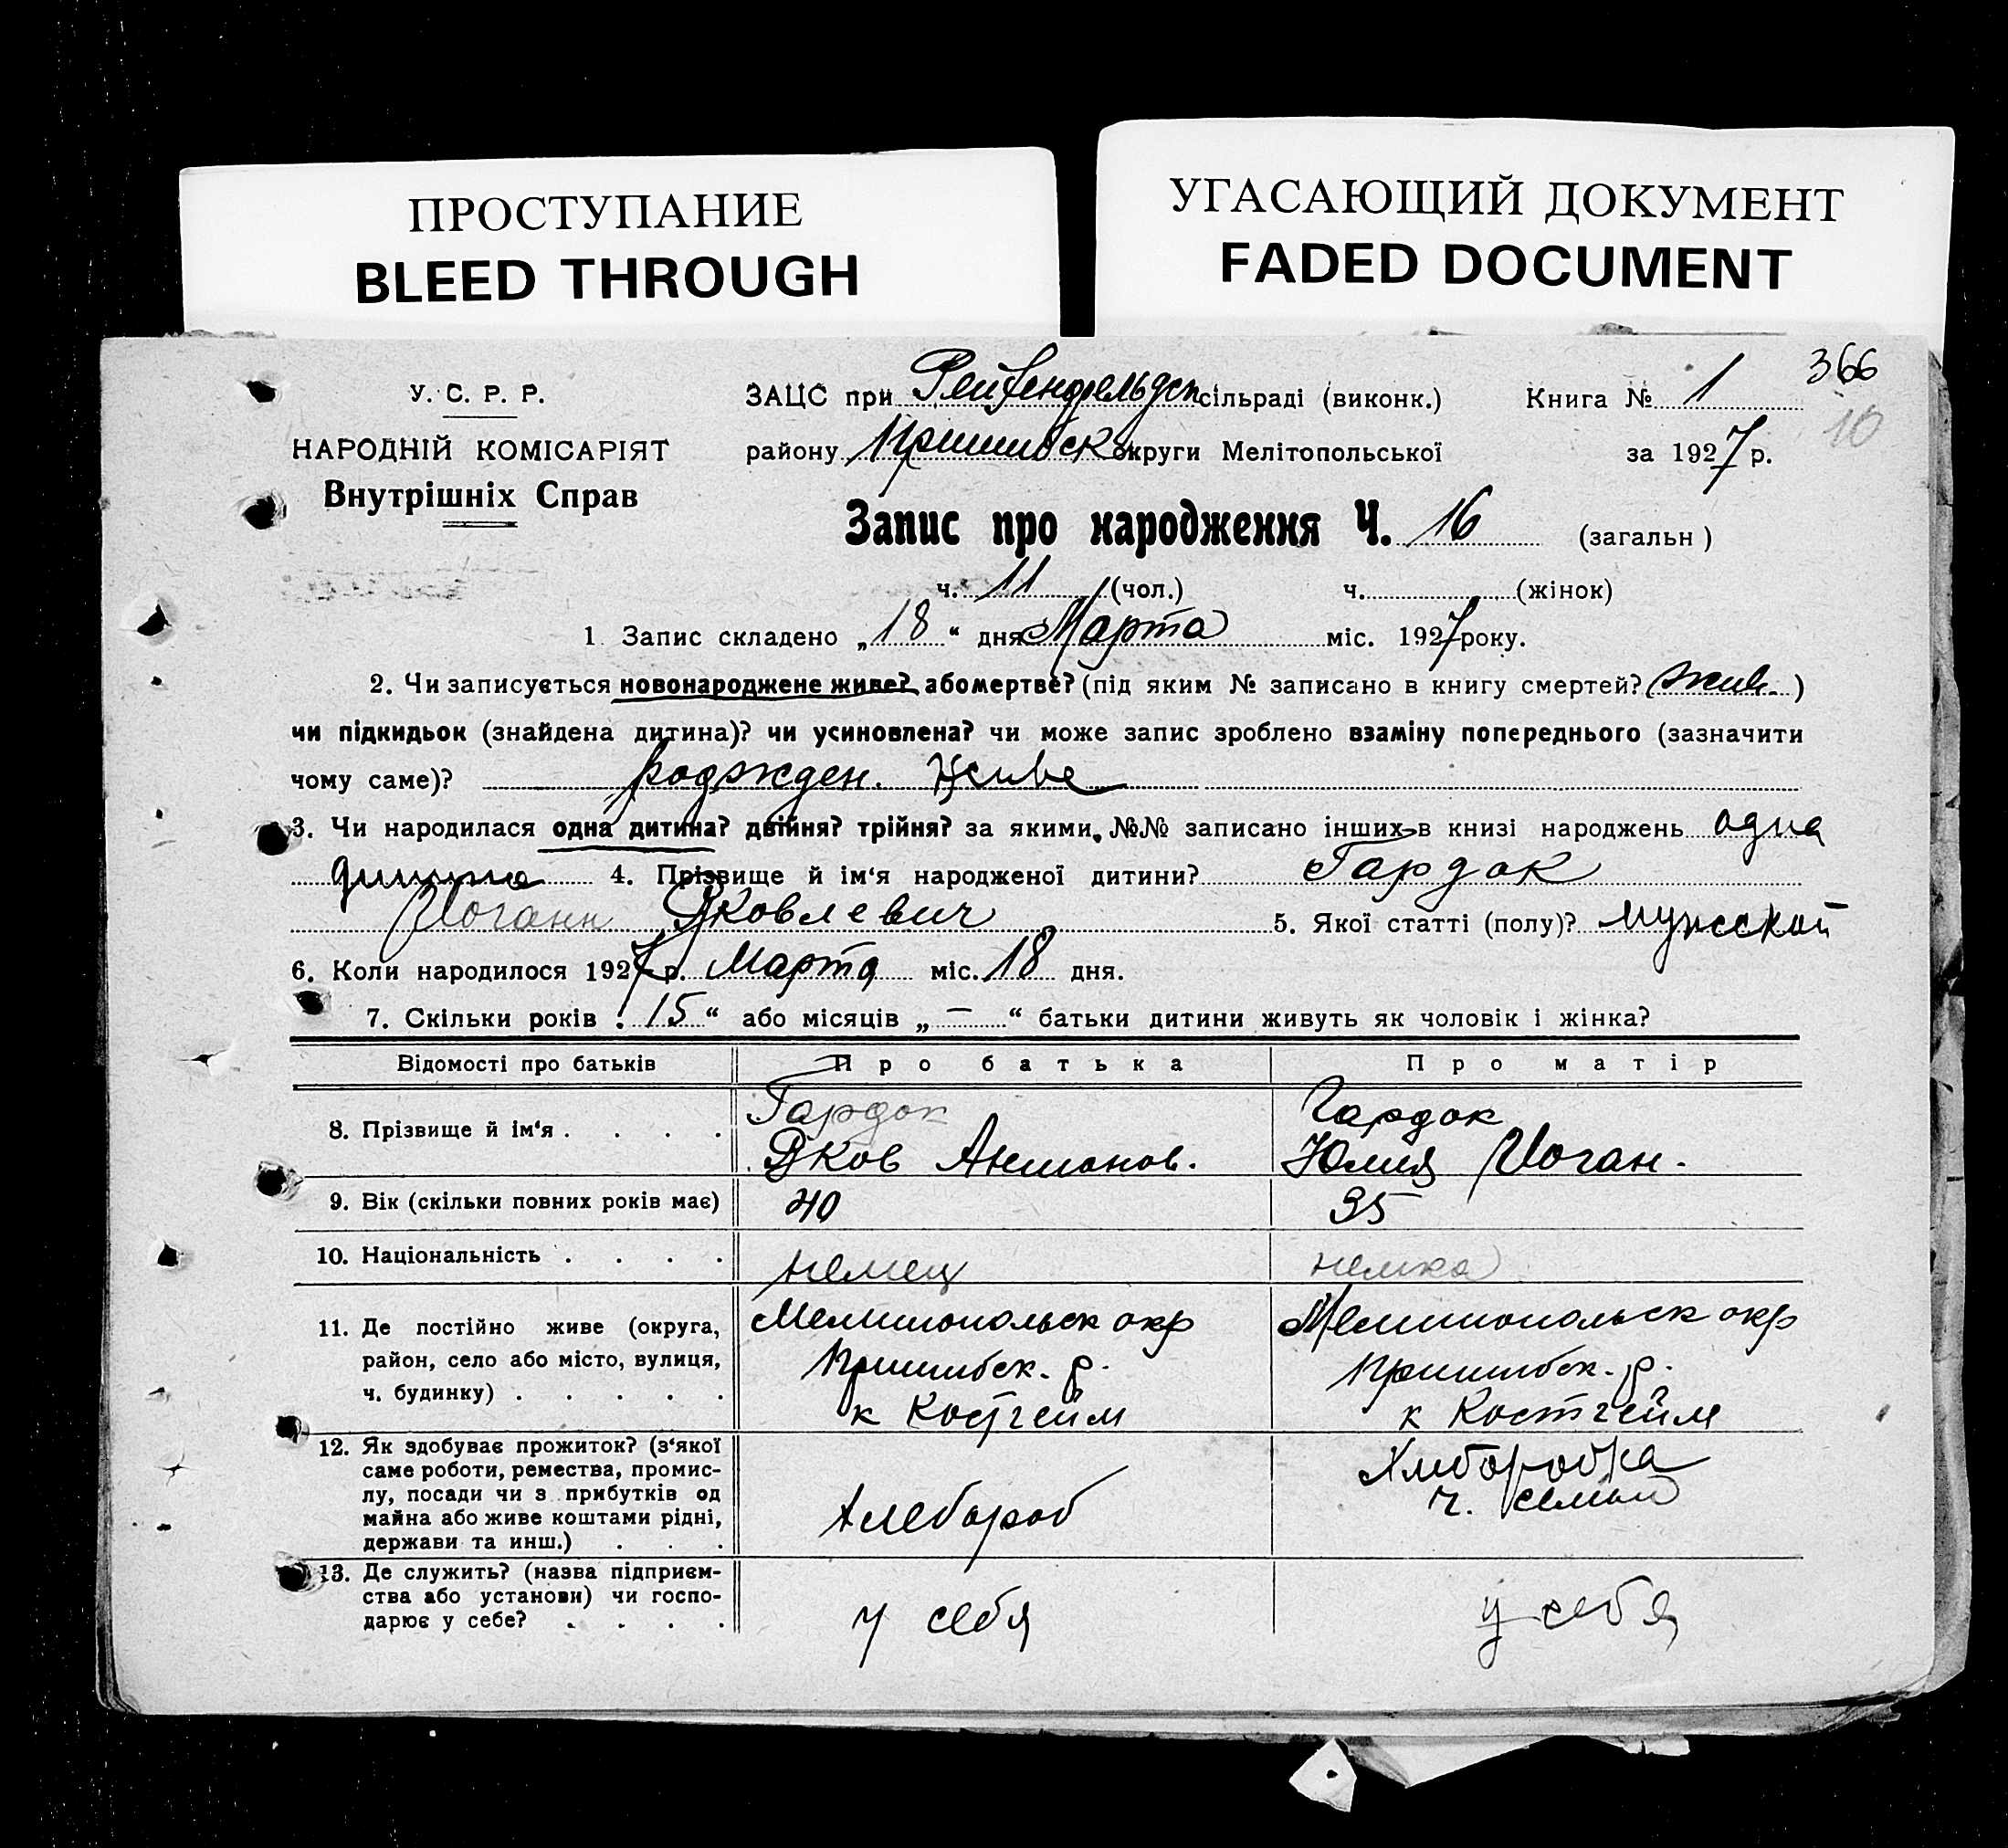 ПРОСТУПАНИЕ
BLEED THROUGH
УГАСАЮЩИЙ ДОКУМЕНТ
FADED DOCUMENT
366
10
У. С. Р. Р.
НАРОДНІЙ КОМІСАРІЯТ
Внутрішніх Справ
ЗАЦС при Рейхенфельдск сільраді (виконк.) Книга № 1
району Пришибск округи Мелітопольської за 1927 р.
Запис про народження Ч. 16 (загальн)
ч. 11 (чол.) ч. (жінок)
1. Запис складено „18“ дня Марта міс. 1927 року.
2. Чи записується новонароджене живе? або мертве? (під яким № записано в книгу смертей? жив.)
чи підкидьок (знайдена дитина)? чи усиновлена? чи може запис зроблено взаміну попереднього (зазначити
чому саме)? рожден. живе
3. Чи народилася одна дитина? двійня? трійня? за якими №№ записано інших в книзі народжень одна
дитина 4. Прізвище й ім‘я народженої дитини? Гардок
Иоганн Яковлевич 5. Якої статті (полу)? мужской
6. Коли народилося 1927 р. Марта міс. 18 дня.
7. Скільки років „15“ або місяців „—“ батьки дитини живуть як чоловік і жінка?
Відомості про батьків Про батька Про матір
8. Прізвище й ім‘я . . . . Гардок Яков Антонов. Гардок Юлия Иоган.
9. Вік (скільки повних років має) 40 35
10. Національність . . . . немец немка
11. Де постійно живе (округа,
район, село або місто, вулиця,
ч. будинку) . . . . .
Мелитопольск окр
Пришибск. р.
к Костгейм
Мелитопольск окр
Пришибск. р.
к Костгейм
12. Як здобуває прожиток? (з‘якої
саме роботи, ремества, промис-
лу, посади чи з прибутків од
майна або живе коштами рідні,
держави та инш.) . . .
Хлебороб
Хлиборобка
ч. семьи
13. Де служить? (назва підприєм-
ства або установи) чи госпо-
дарює у себе? . . . .
у себя
у себя